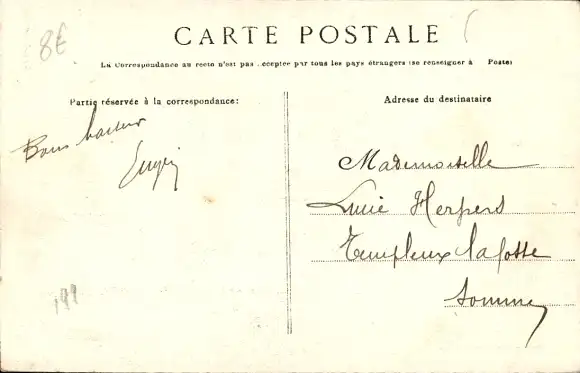 8€
CARTE POSTALE
La Correspondance au recto n'est pas acceptée par tous les pays étrangers (se renseigner à Poste)
Partie réservée à la correspondance:
Adresse du destinataire
Bons baisers
Mademoiselle
Lucie Herpers
Templeux lafosse
Somme
199